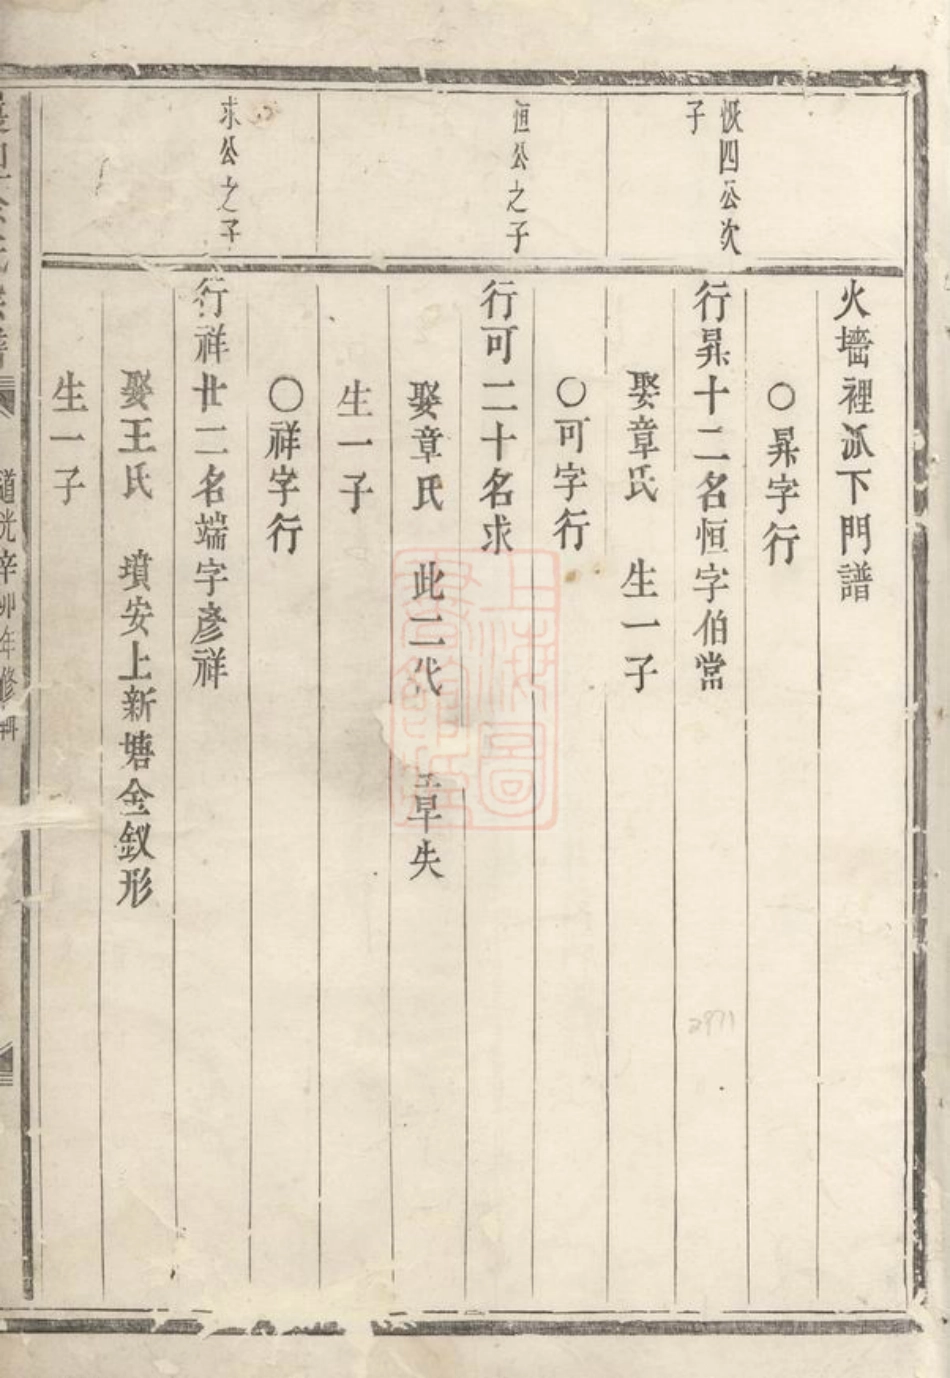 火墻裡派下門譜
○昇字行
恢四公次
子
行昇十二名恒字伯常
娶章氏 生一子
○可字行
恒公之子
行可二十名求
娶章氏 此二代 章失
生一子
○祥字行
求公之子
行祥廿二名端字彥祥
娶王氏 墳安上新塘金釵形
生一子
道光辛卯年修輯
上海圖
書館藏
2971